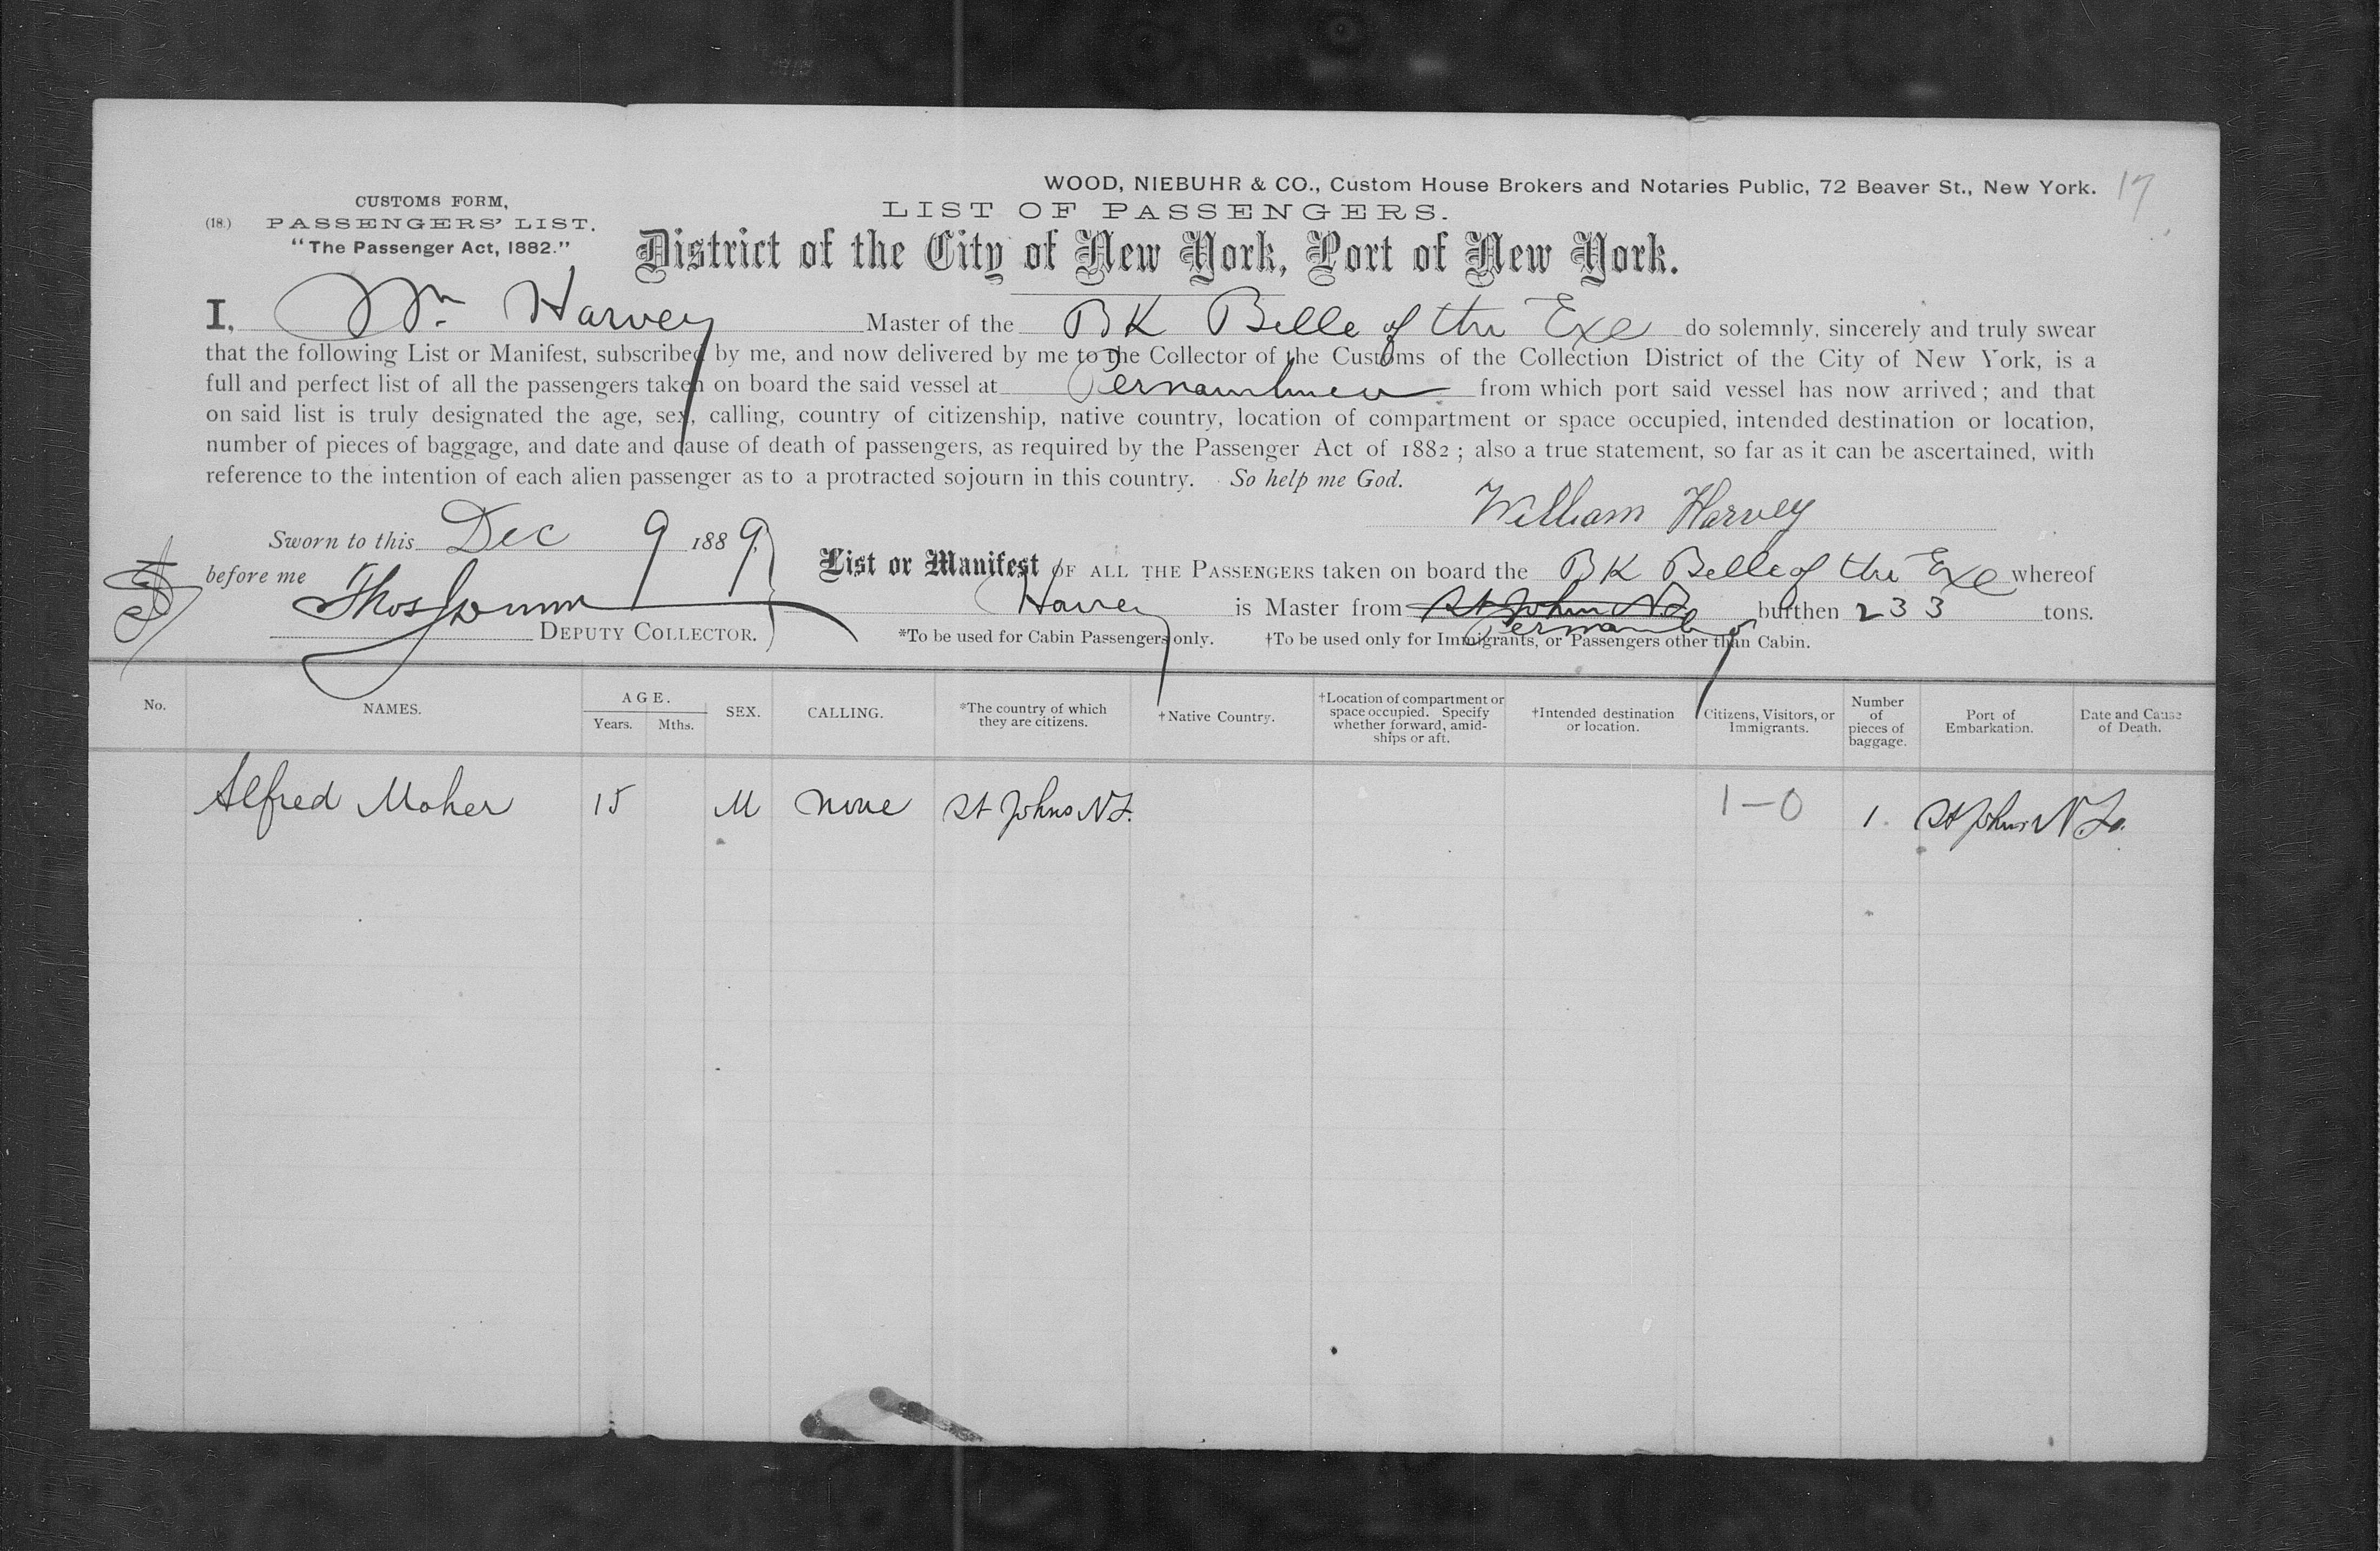 WOOD, NIEBUHR & CO., Custom House Brokers and Notaries Public, 72 Beaver St., New York. 17
(18.) CUSTOMS FORM,
PASSENGERS' LIST.
"The Passenger Act, 1882."
LIST OF PASSENGERS.
District of the City of New York, Port of New York.
I, Wm Harvey Master of the BK Belle of the Exe do solemnly, sincerely and truly swear
that the following List or Manifest, subscribed by me, and now delivered by me to the Collector of the Customs of the Collection District of the City of New York, is a
full and perfect list of all the passengers taken on board the said vessel at Pernambuco from which port said vessel has now arrived; and that
on said list is truly designated the age, sex, calling, country of citizenship, native country, location of compartment or space occupied, intended destination or location,
number of pieces of baggage, and date and cause of death of passengers, as required by the Passenger Act of 1882; also a true statement, so far as it can be ascertained, with
reference to the intention of each alien passenger as to a protracted sojourn in this country. So help me God.
William Harvey
Sworn to this Dec 9 1889,
before me Thos
DEPUTY COLLECTOR.
List or Manifest OF ALL THE PASSENGERS taken on board the BK Belle of the Exe whereof
Harvey is Master from St John N.F. burthen 233 tons.
Pernambuco
*To be used for Cabin Passengers only. †To be used only for Immigrants, or Passengers other than Cabin.
No. NAMES. AGE. Years. Mths. SEX. CALLING. *The country of which they are citizens. †Native Country. †Location of compartment or space occupied. Specify whether forward, amidships or aft. †Intended destination or location. Citizens, Visitors, or Immigrants. Number of pieces of baggage. Port of Embarkation. Date and Cause of Death.
Alfred Maher 15 M none St Johns N.F. 1-0 1. St Johns N.F.